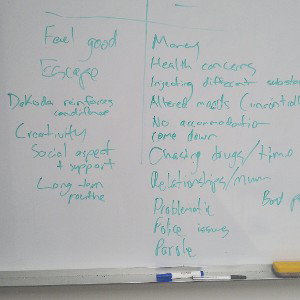 Feel good
Escape
Dakoda reinforces
confidence
Creativity
Social aspect
+ support
Long term
routine
–
Money
Health concerns
Injecting different
Altered moods
No accommodation
come down
Chasing drugs/time
Relationships/Mum
Problematic
Police issues
Parole